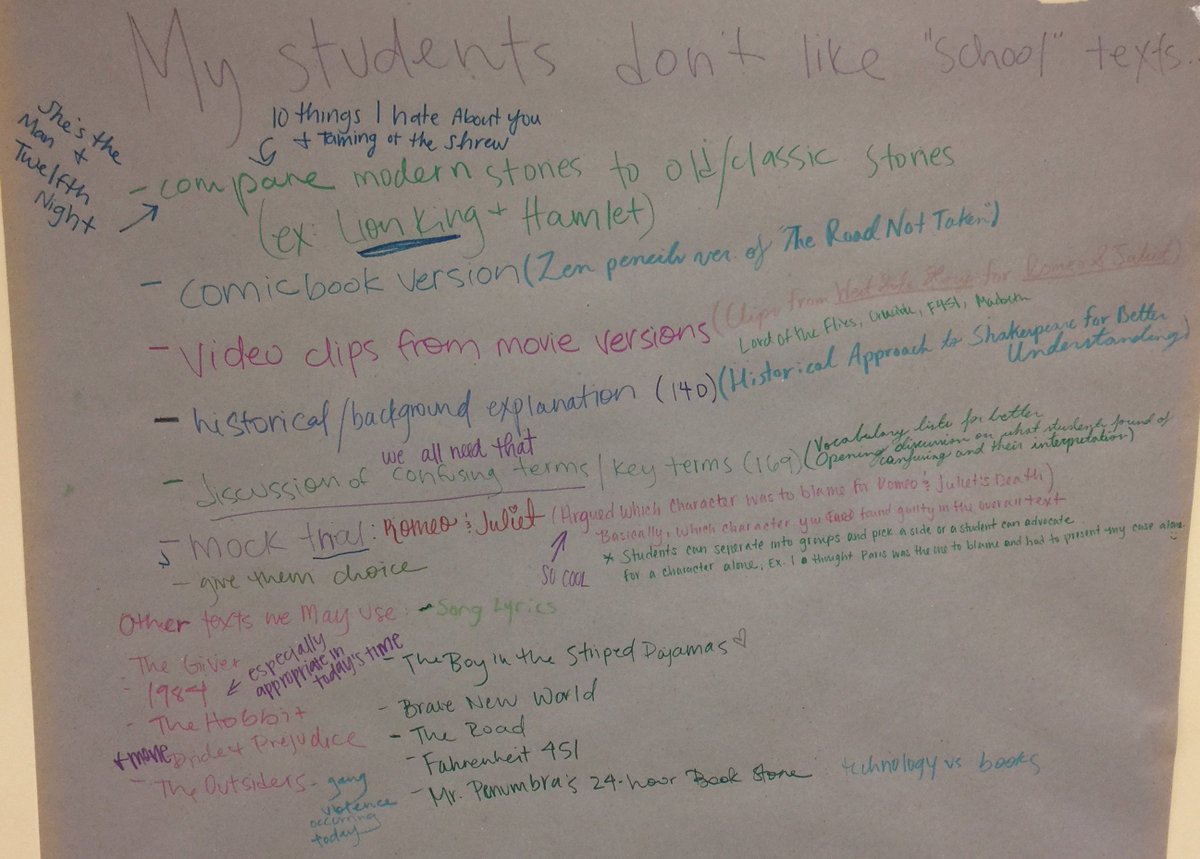 My students don't like "school" texts.
She's the
Man +
Twelfth
Night
10 things I hate About you
+ Taming of the shrew
- compare modern stories to old/classic stories
(ex: Lion King + Hamlet)
- comic book version (Zen pencils ver. of "The Road Not Taken")
- Video clips from movie versions (Clips from West Side Story for Romeo & Juliet)
Lord of the Flies, Crucible, F451, Macbeth
- historical/background explanation (140) (Historical Approach to Shakespeare for Better
Understanding)
we all need that
- discussion of confusing terms/key terms (169) (Vocabulary lists for better
Opening discussion on what students found of
confusing and their interpretation)
- Mock trial: Romeo & Juliet (Argued which character was to blame for Romeo & Juliet's Death)
Basically, which character you found guilty in the overall text
SO COOL
* Students can seperate into groups and pick a side or a student can advocate
for a character alone, Ex. I thought Paris was the one to blame and had to present my case alone.
- give them choice
Other texts we May use: - Song Lyrics
- The Giver
- 1984 especially
appropriate in
today's time
- The Hobbit
+ movie Pride & Prejudice
- The Outsiders - gang
violence
occurring
today
- The Boy in the Striped Pajamas ♡
- Brave New World
- The Road
- Fahrenheit 451
- Mr. Penumbra's 24-hour Book Store technology vs books